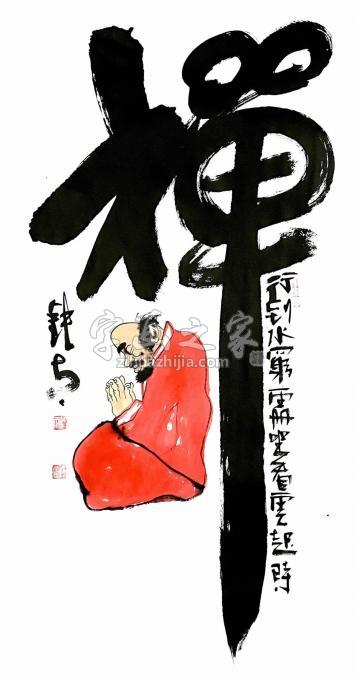 禪
行到水窮處坐看雲起時
字画之家
zihuazhijia.com